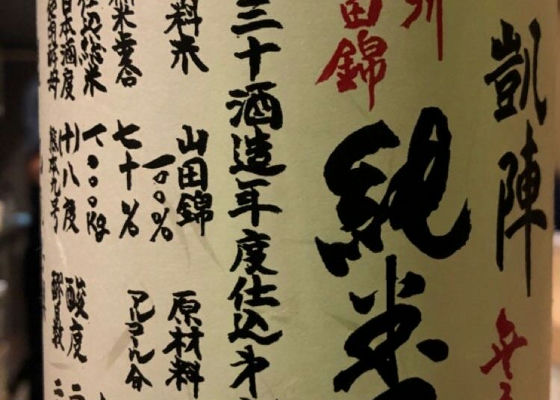 凱陣
純米
山田錦
三十酒造年度仕込第
料米 山田錦 一〇〇%
原材料
精米歩合 七十%
アルコール分
仕込総米 一〇〇〇kg
酸度
日本酒度 (+)八度
使用酵母 熊本九号